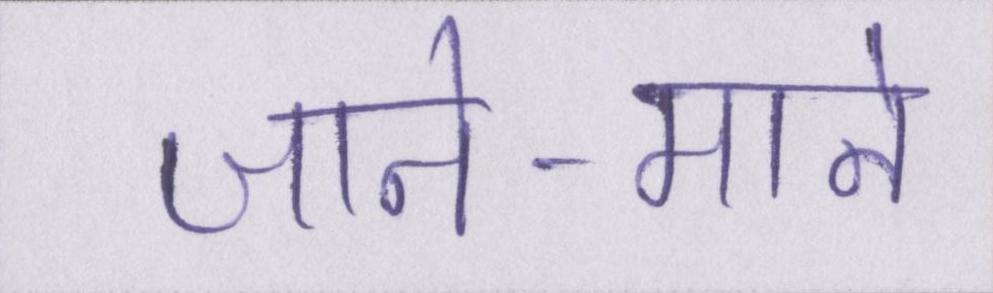 जाने-माने